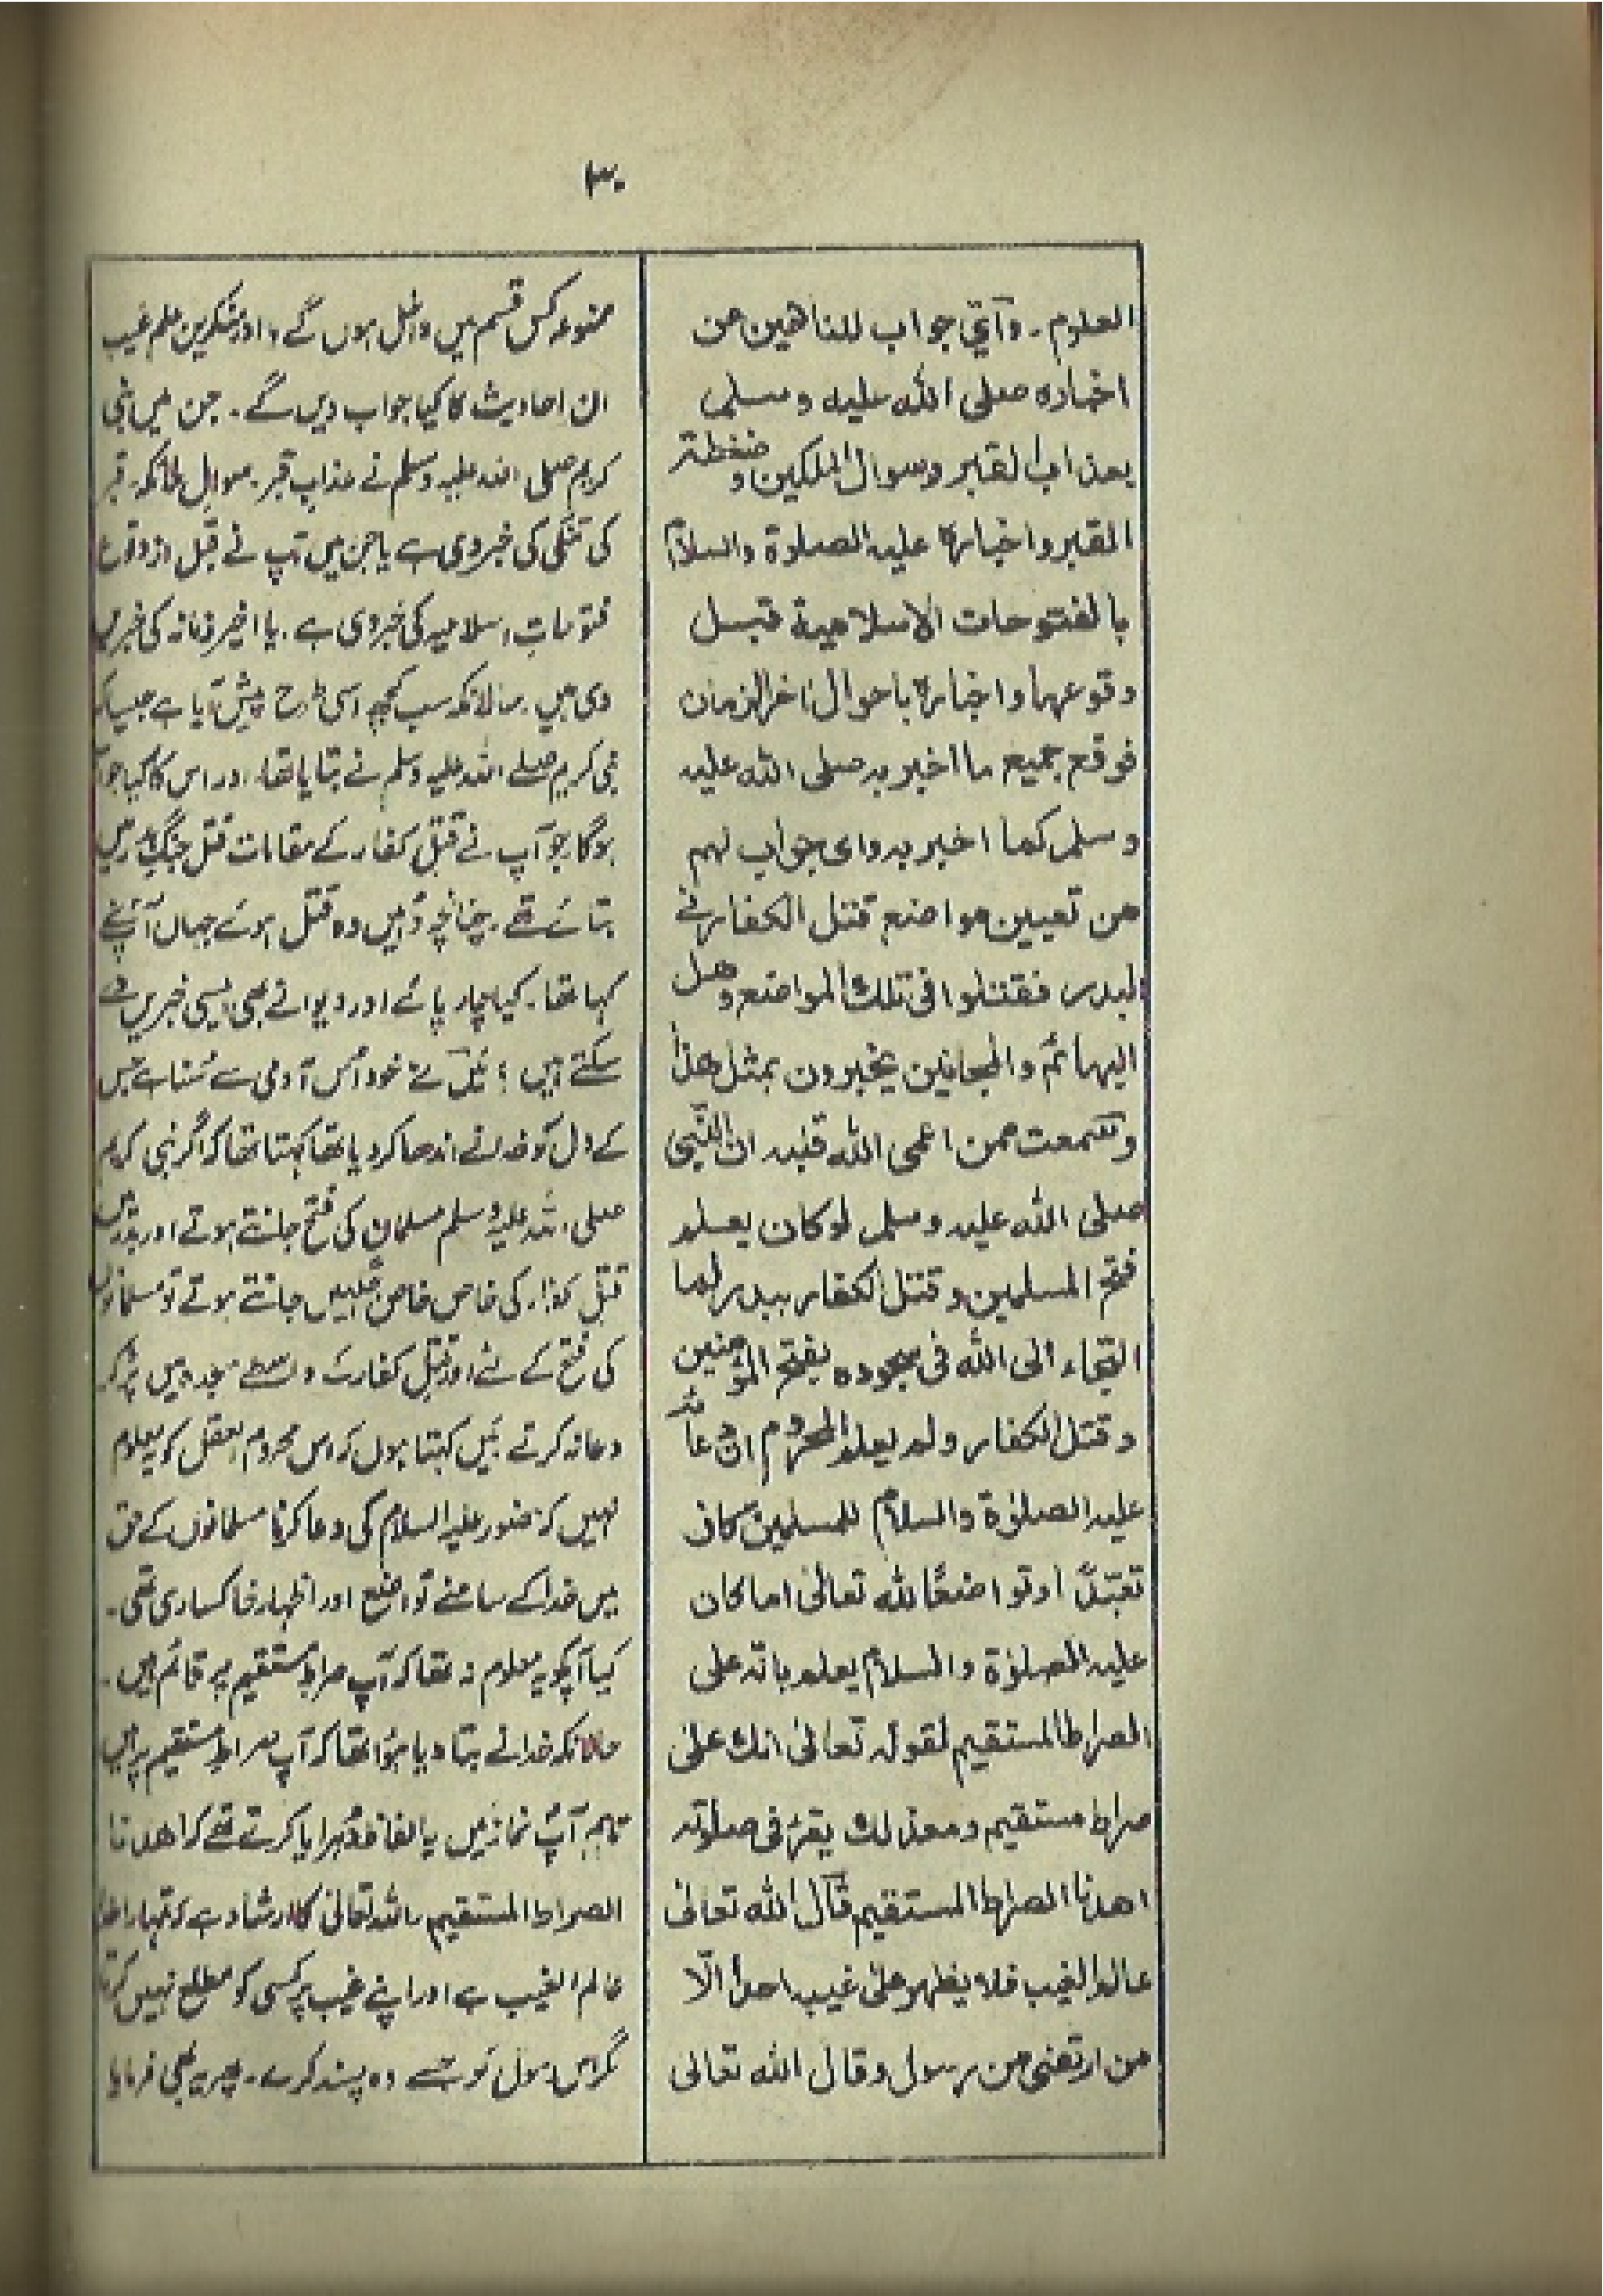 ۳۰
العلوم ۔ وآتي جواب للناهين من
اخباره صلى الله عليه وسلم
بعذاب القبر وسوال الملكين و ضغطة
القبر واخباره عليه الصلوة والسلام
بالفتوحات الاسلامية قبل
وقوعها واخباره باحوال اخر الزمان
فوقع جميع ما اخبر به صلى الله عليه
وسلم كما اخبر به واى جواب لهم
من تعيين مواضع قتل الكفار فى
البدر فقتلوا فى تلك المواضع وهل
البهائم والمجانين يخبرون بمثل هذا
وسمعت ممن اعمى الله قلبه ان النبي
صلى الله عليه وسلم لو كان يعلم
فتح المسلمين وقتل الكفار ببدر لما
التجاء الى الله فى سجوده بفتح المؤمنين
وقتل الكفار ولم يعلم المحروم ان دعائه
عليه الصلوة والسلام للمسلمين كان
تعبدًا او تواضعًا لله تعالى اما كان
عليه الصلوة والسلام يعلم بانه على
الصراط المستقيم لقوله تعالى انك على
صراط مستقيم ومع ذلك يقرء فى صلوته
اهدنا الصراط المستقيم قال الله تعالى
عالم الغيب فلا يظهر على غيبه احدا الّا
من ارتضى من رسول وقال الله تعالى
ممنوعہ کس قسم میں داخل ہوں گے، اور منکرین علم غیب
ان احادیث کا کیا جواب دیں گے ۔ جن میں نبی
کریم صلی اللہ علیہ وسلم نے عذاب قبر ۔ سوال ملائکہ ۔ قبر
کی تنگی کی خبر دی ہے یا جن میں آپ نے قبل از وقوع
فتوحات اسلامیہ کی خبر دی ہے ۔ یا اخیر زمانہ کی خبریں
دی ہیں ۔ حالانکہ سب کچھ اسی طرح پیش آیا ہے جیسا کہ
نبی کریم صلے اللہ علیہ وسلم نے بتایا تھا ۔ اور اس کا کیا جواب
ہوگا جو آپ نے قتل کفار کے مقامات قبل جنگ بدر میں
بتائے تھے ۔ چنانچہ وہیں وہ قتل ہوئے جہاں آپ نے
کہا تھا ۔ کیا چار پائے اور دیوانے بھی ایسی خبریں دے
سکتے ہیں ؟ میں نے خود اس آدمی سے سُنا ہے جس
کے دل کو خدا نے اندھا کر دیا تھا کہتا تھا کہ اگر نبی کریم
صلی اللہ علیہ وسلم مسلمان کی فتح جانتے ہوتے اور بدر میں
قتل کفار کی خاص خاص جگہیں جانتے ہوتے تو مسلمانوں
کی فتح کے لئے اور قتل کفار کے واسطے سجدہ میں گر کر
دعا نہ کرتے میں کہتا ہوں کہ اس محروم العقل کو یہ معلوم
نہیں کہ حضور علیہ السلام کی دعا کرنا مسلمانوں کے حق
میں خدا کے سامنے تواضع اور اظہار خاکساری تھی ۔
کیا آپکو یہ معلوم نہ تھا کہ آپ صراط مستقیم پر قائم ہیں ۔
حالانکہ خدا نے بتا دیا ہوا تھا کہ آپ صراط مستقیم پر ہیں
تاہم آپ نماز میں یہ الفاظ دُہرایا کرتے تھے کہ اھدنا
الصراط المستقیم ۔ اللہ تعالیٰ کا ارشاد ہے کہ تمہارا خدا
عالم الغیب ہے اور اپنے غیب پر کسی کو مطلع نہیں کرتا
مگر اس رسول کو جسے وہ پسند کرے ۔ پھر یہ بھی فرمایا